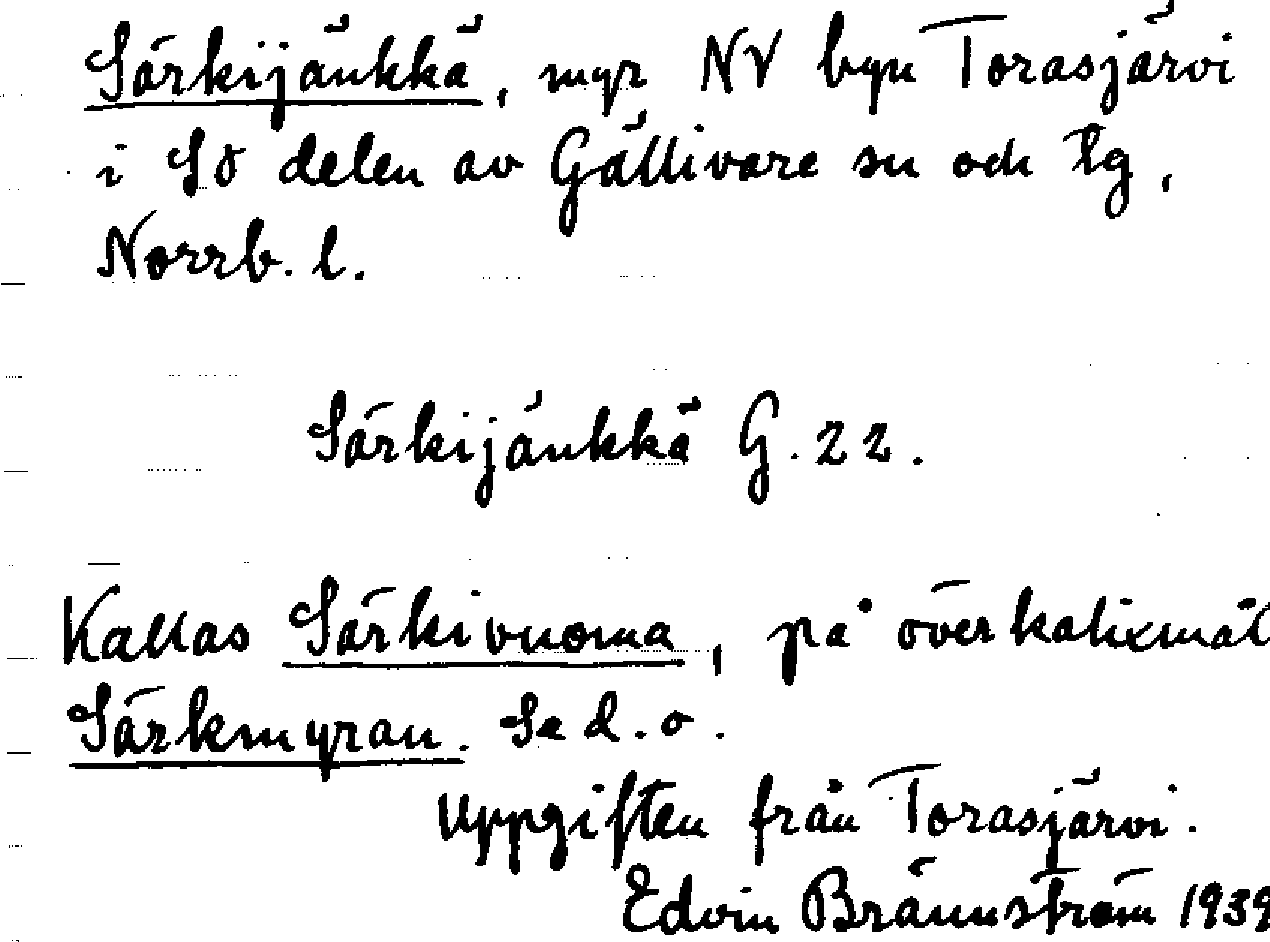 Särkijänkkä, myr NV byn Torasjärvi
i SÖ delen av Gällivare sn och tg,
Norrb. l.
Särkijänkkä G. 22.
Kallas Särkivuoma, på överkalixmål
Särkmyran. Se d. o.
Uppgiften från Torasjärvi.
Edvin Brännström 1939